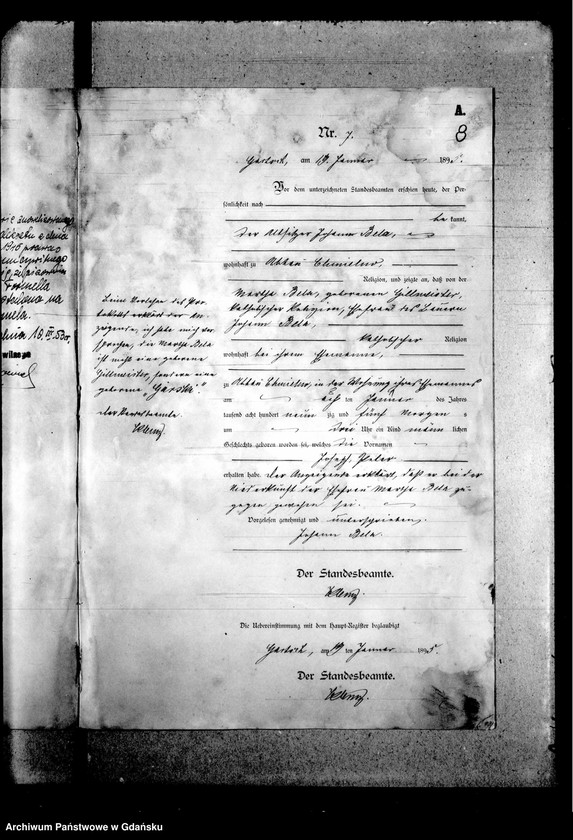 A.
8
Nr. 7.
am 19. Januar 189
Vor dem unterzeichneten Standesbeamten erschien heute, der Per-
sönlichkeit nach
be kannt,
der Altsitzer Johann Bela,
wohnhaft zu Abbau Chmielno
Religion, und zeigte an, daß von der
Martha Bela, geborenen Hillmeister,
katholischer Religion, Ehefrau des
Johann Bela,
katholischer Religion
wohnhaft bei ihrem Ehemanne,
zu Abbau Chmielno, in der Wohnung ihres Ehemannes
am ten Januar des Jahres
tausend acht hundert neun zig und fünf Morgens
um drei Uhr ein Kind männ lichen
Geschlechts geboren worden sei, welches die Vornamen
Joseph Peter
erhalten habe. Der Anzeigende erklärt, daß er bei der
Niederkunft der Ehefrau Martha Bela zu-
gegen gewesen sei.
Vorgelesen, genehmigt und unterschrieben.
Johann Bela.
Der Standesbeamte.
Die Uebereinstimmung mit dem Haupt-Register beglaubigt
am 19 ten Januar 1895.
Der Standesbeamte.
Beim Vorlesen des Pro-
tokolls erklärt der An-
zeigende, ich habe mich ver-
sprochen, die Martha Bela
ist nicht eine geborene
Hillmeister, sondern eine
geborene
Der Standesbeamte.
18.III.50
Archiwum Państwowe w Gdańsku